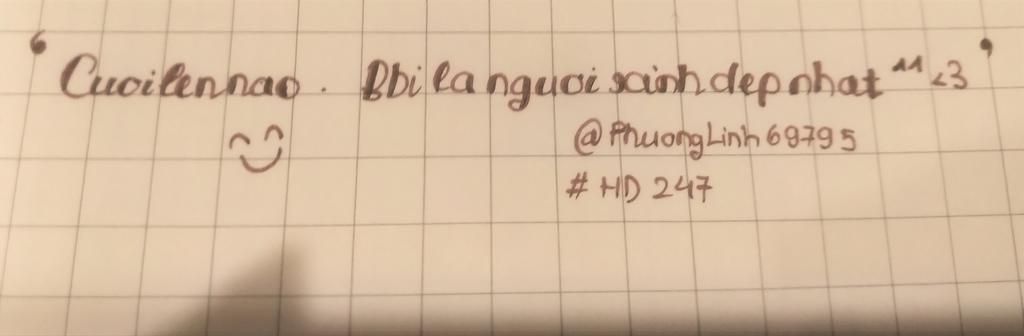 ‘Cuoilennao. Bbi la nguoi sainh dep nhat ^^ <3’
@PhuongLinh69795
#HD247